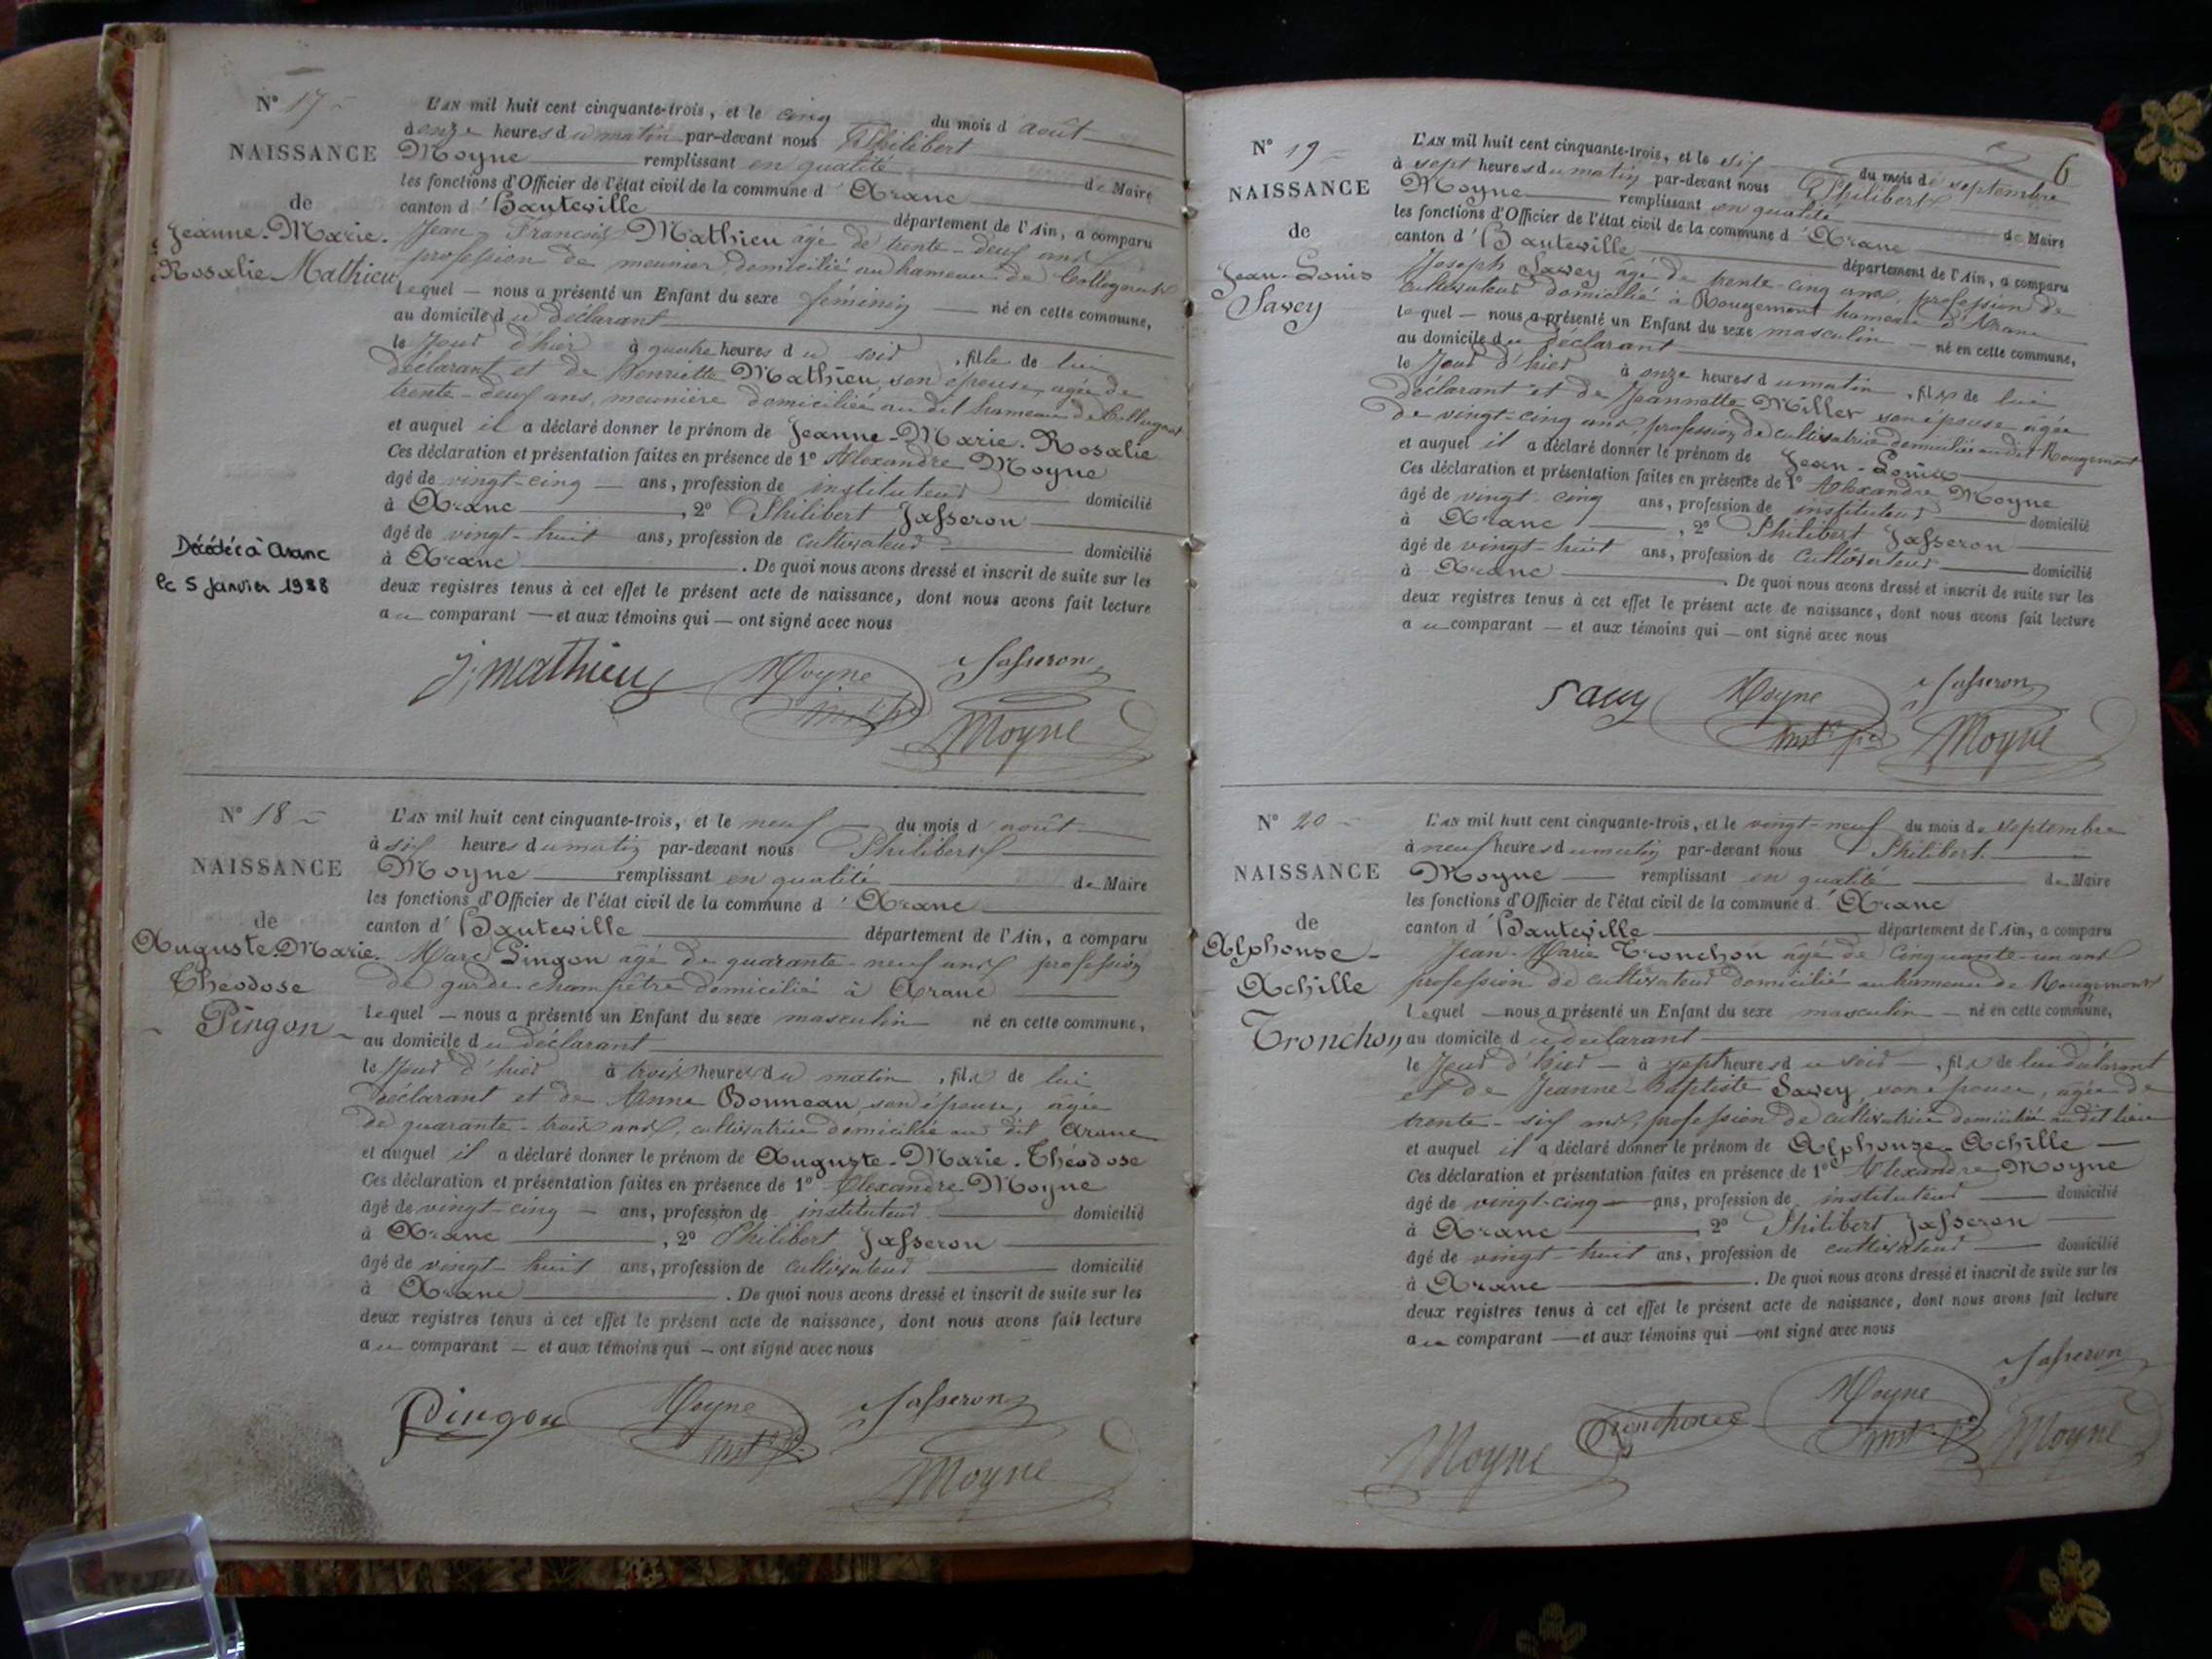 N° 17
NAISSANCE
de
Jeanne-Marie-
Rosalie Mathieu
Décédée à Aranc
le 5 Janvier 1938
L'AN mil huit cent cinquante-trois, et le cinq du mois d'août
à onze heures du matin par-devant nous Philibert
Moyne remplissant en qualité de Maire
les fonctions d'Officier de l'état civil de la commune d'Aranc
canton d'Hauteville département de l'Ain, a comparu
Jean-François Mathieu âgé de trente-deux ans
profession de meunier, domicilié au hameau de
lequel nous a présenté un Enfant du sexe féminin né en cette commune,
au domicile du déclarant
le Jour d'hier à quatre heures du soir, fille de lui
déclarant et de Henriette Mathieu, son épouse, agée de
trente-deux ans, meunière domiciliée au dit hameau de
et auquel il a déclaré donner le prénom de Jeanne-Marie-Rosalie
Ces déclaration et présentation faites en présence de 1° Alexandre Moyne
âgé de vingt-cinq ans, profession de instituteur domicilié
à Aranc, 2° Philibert Jasseron
âgé de vingt-huit ans, profession de cultivateur domicilié
à Aranc. De quoi nous avons dressé et inscrit de suite sur les
deux registres tenus à cet effet le présent acte de naissance, dont nous avons fait lecture
au comparant et aux témoins qui ont signé avec nous
J. mathieu Moyne Jasseron
Moyne
N° 18
NAISSANCE
de
Auguste-Marie-
Théodose
Pingon
L'AN mil huit cent cinquante-trois, et le neuf du mois d'août
à six heures du matin par-devant nous Philibert
Moyne remplissant en qualité de Maire
les fonctions d'Officier de l'état civil de la commune d'Aranc
canton d'Hauteville département de l'Ain, a comparu
Marc Pingon âgé de quarante-neuf ans profession
de garde-champêtre domicilié à Aranc
lequel nous a présenté un Enfant du sexe masculin né en cette commune,
au domicile du déclarant
le Jour d'hier à trois heures du matin, fils de lui
déclarant et de Anne Bonneau, son épouse, âgée
de quarante-trois ans, cultivatrice domiciliée au dit Aranc
et auquel il a déclaré donner le prénom de Auguste-Marie-Théodose
Ces déclaration et présentation faites en présence de 1° Alexandre Moyne
âgé de vingt-cinq ans, profession de instituteur domicilié
à Aranc, 2° Philibert Jasseron
âgé de vingt-huit ans, profession de cultivateur domicilié
à Aranc. De quoi nous avons dressé et inscrit de suite sur les
deux registres tenus à cet effet le présent acte de naissance, dont nous avons fait lecture
au comparant et aux témoins qui ont signé avec nous
Pingon Moyne Jasseron
Moyne
6
N° 19
NAISSANCE
de
Jean-Louis
Savey
L'AN mil huit cent cinquante-trois, et le six du mois de septembre
à sept heures du matin par-devant nous Philibert
Moyne remplissant en qualité de Maire
les fonctions d'Officier de l'état civil de la commune d'Aranc
canton d'Hauteville département de l'Ain, a comparu
Joseph Savey âgé de trente-cinq ans, profession de
cultivateur domicilié à Rougemont hameau d'Aranc
lequel nous a présenté un Enfant du sexe masculin né en cette commune,
au domicile du déclarant
le Jour d'hier à onze heures du matin, fils de lui
déclarant et de Jeannette Millet son épouse âgée
de vingt-cinq ans, profession de cultivatrice domiciliée au dit Rougemont
et auquel il a déclaré donner le prénom de Jean-Louis
Ces déclaration et présentation faites en présence de 1° Alexandre Moyne
âgé de vingt-cinq ans, profession de instituteur domicilié
à Aranc, 2° Philibert Jasseron
âgé de vingt-huit ans, profession de cultivateur domicilié
à Aranc. De quoi nous avons dressé et inscrit de suite sur les
deux registres tenus à cet effet le présent acte de naissance, dont nous avons fait lecture
au comparant et aux témoins qui ont signé avec nous
Savey Moyne Jasseron
Moyne
N° 20
NAISSANCE
de
Alphonse-
Achille
Tronchon
L'AN mil huit cent cinquante-trois, et le vingt-neuf du mois de septembre
à neuf heures du matin par-devant nous Philibert
Moyne remplissant en qualité de Maire
les fonctions d'Officier de l'état civil de la commune d'Aranc
canton d'Hauteville département de l'Ain, a comparu
Jean-Marie Tronchon âgé de cinquante-un ans
profession de cultivateur domicilié au hameau de Rougemont
lequel nous a présenté un Enfant du sexe masculin né en cette commune,
au domicile du déclarant
le Jour d'hier à sept heures du soir, fils de lui déclarant
et de Jeanne-Baptiste Savey, son épouse, âgée de
trente-six ans, profession de cultivatrice domiciliée au dit lieu
et auquel il a déclaré donner le prénom de Alphonse-Achille
Ces déclaration et présentation faites en présence de 1° Alexandre Moyne
âgé de vingt-cinq ans, profession de instituteur domicilié
à Aranc, 2° Philibert Jasseron
âgé de vingt-huit ans, profession de cultivateur domicilié
à Aranc. De quoi nous avons dressé et inscrit de suite sur les
deux registres tenus à cet effet le présent acte de naissance, dont nous avons fait lecture
au comparant et aux témoins qui ont signé avec nous
Jasseron
Moyne Moyne Moyne